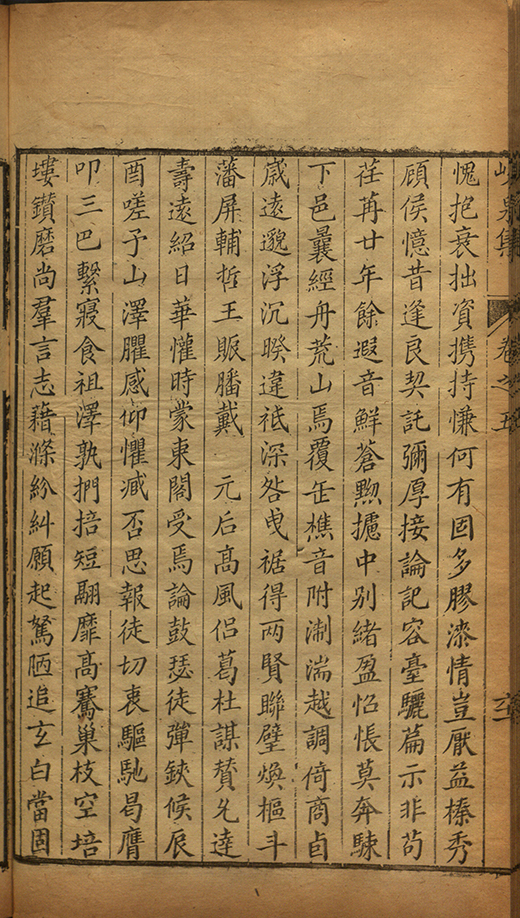 泉集 卷之五
愧抱衰拙資携持慊何有固多膠漆情豈厭益榛秀
顧侯憶昔逢良契託彌厚接論記容臺驪篇示非苟
荏苒廿年餘遐音鮮蒼黝攄中别緒盈怊悵莫奔騋
下邑曩經舟荒山焉覆缶樵音附淛湍越調倚商卣
歲遠邈浮沉暌違祗深咎曳裾得两賢聯璧煥樞斗
藩屏輔哲王賑膰戴 元后髙風侣葛杜謀賛允達
壽遠紹日華懽時蒙東閣受焉論鼓瑟徒彈鋏候辰
酉嗟予山澤臞感仰懼臧否思報徒切衷驅馳曷膺
叩三巴繫寢食祖澤孰捫掊短翮靡髙騫巢枝空培
塿鑚磨尚羣言志藉滌紛糾願起駑陋追玄白當固